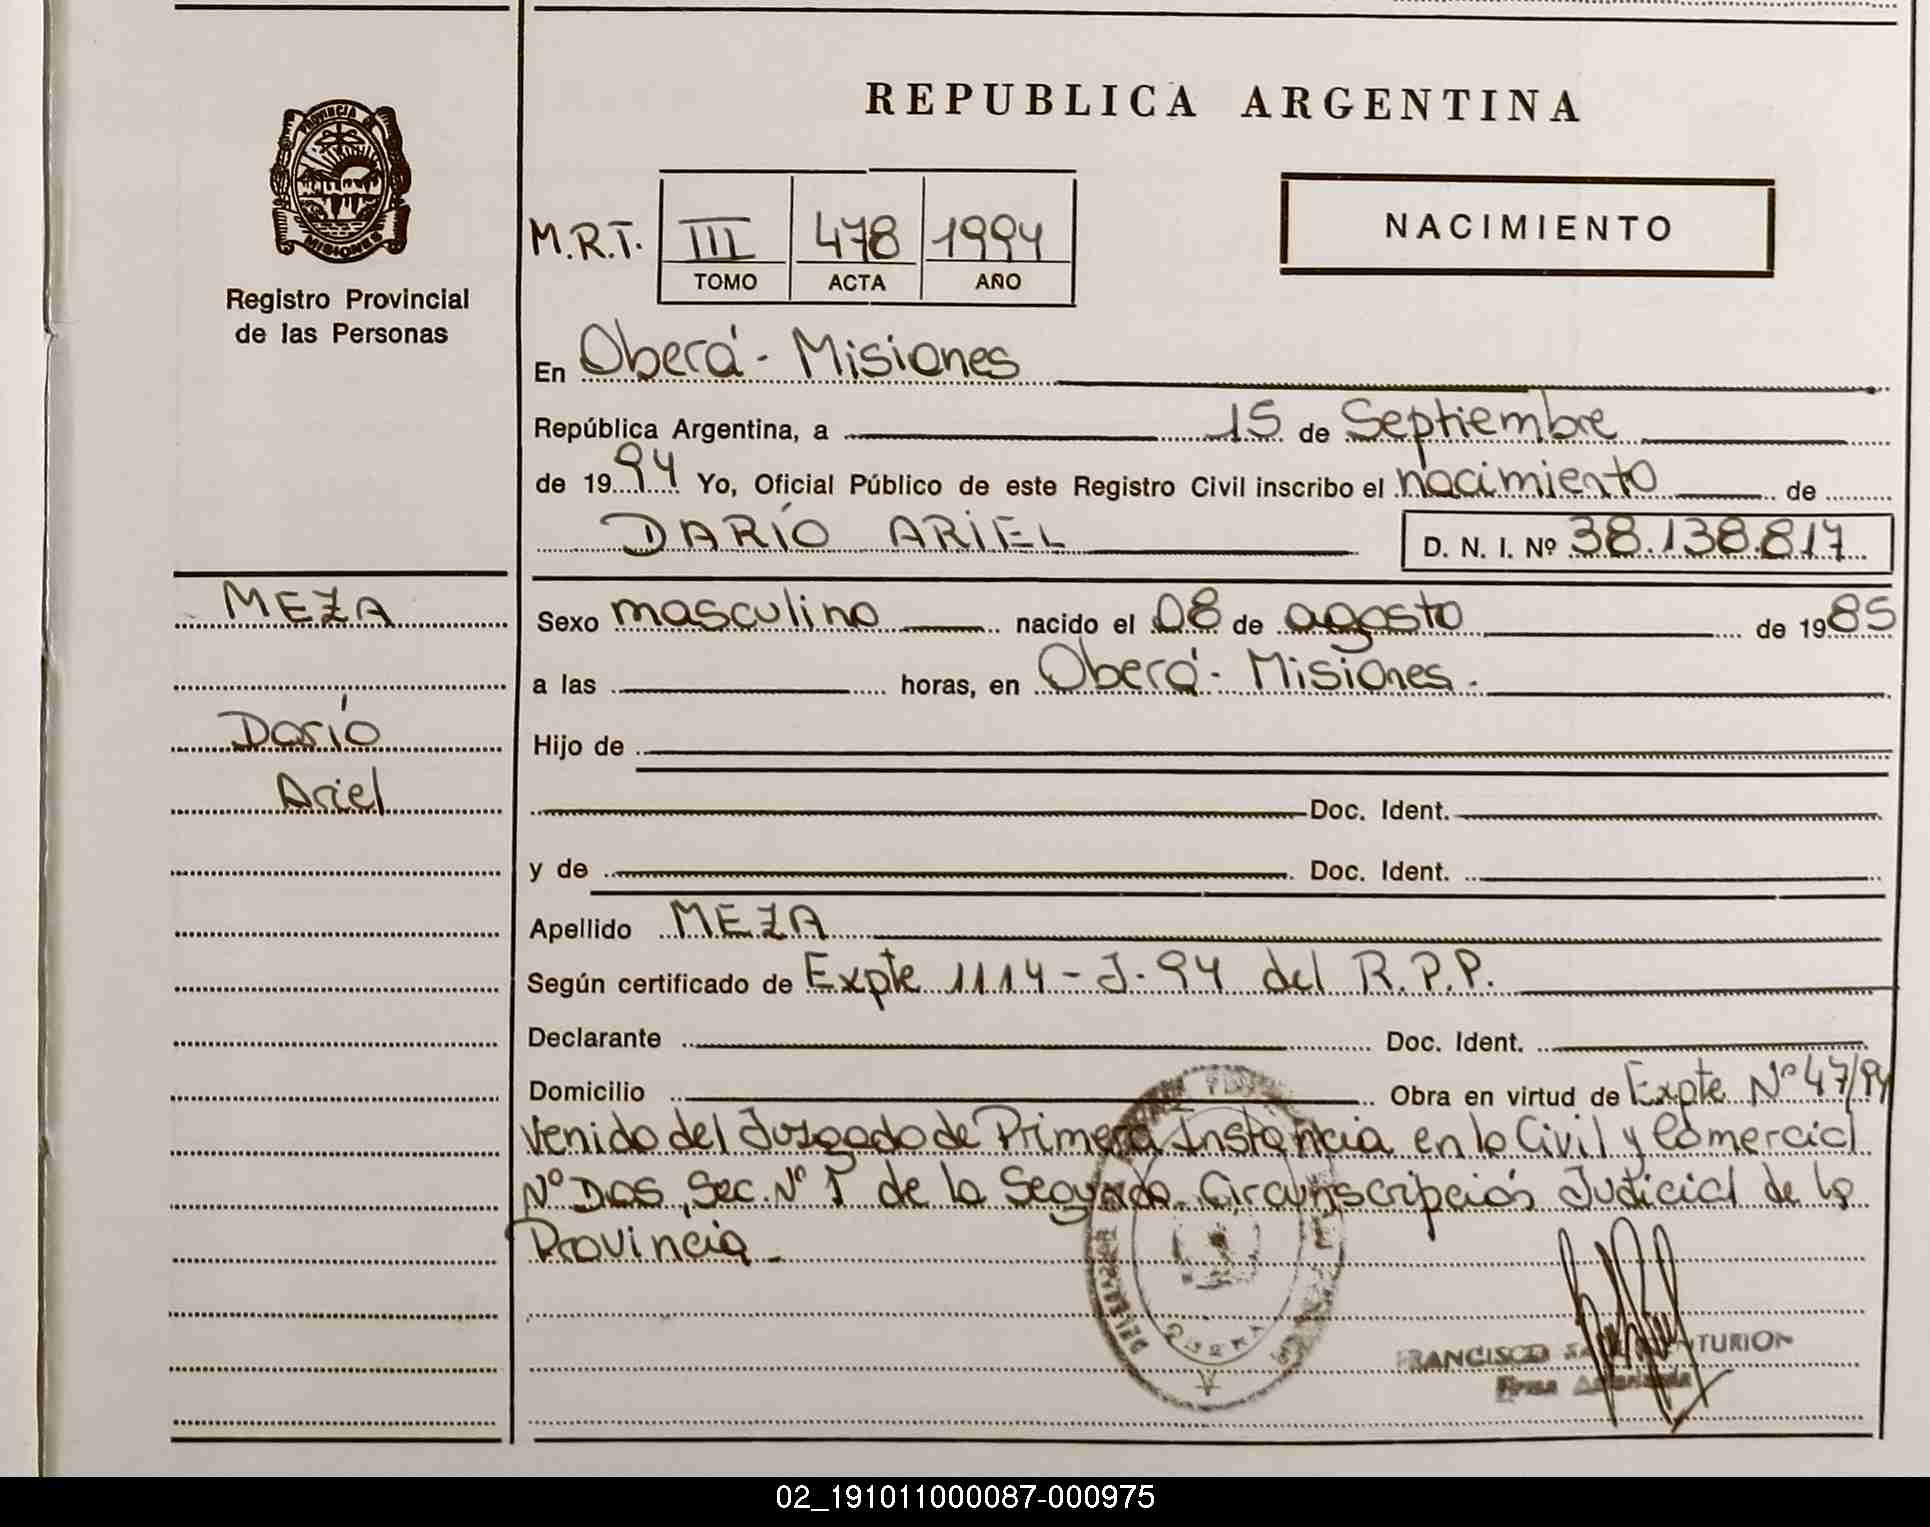 REPUBLICA ARGENTINA
PROVINCIA D
MISIONES
Registro Provincial
de las Personas
NACIMIENTO
M.R.T. III 478 1994
TOMO ACTA AÑO
En Oberá - Misiones
República Argentina, a 15 de Septiembre
de 1994 Yo, Oficial Público de este Registro Civil inscribo el nacimiento de
DARÍO ARIEL D. N. I. Nº 38.138.817
MEZA
Darío
Ariel
Sexo masculino nacido el 08 de agosto de 1985
a las horas, en Oberá - Misiones.
Hijo de
Doc. Ident.
y de Doc. Ident.
Apellido MEZA
Según certificado de Expte 1114 - J - 94 del R.P.P.
Declarante Doc. Ident.
Domicilio Obra en virtud de Expte Nº 47/94
venido del Juzgado de Primera Instancia en lo Civil y Comercial
Nº Dos, Sec. Nº 1 de la Segunda Circunscripción Judicial de la
Provincia.
FRANCISCO TURION
Firma
02_191011000087-000975